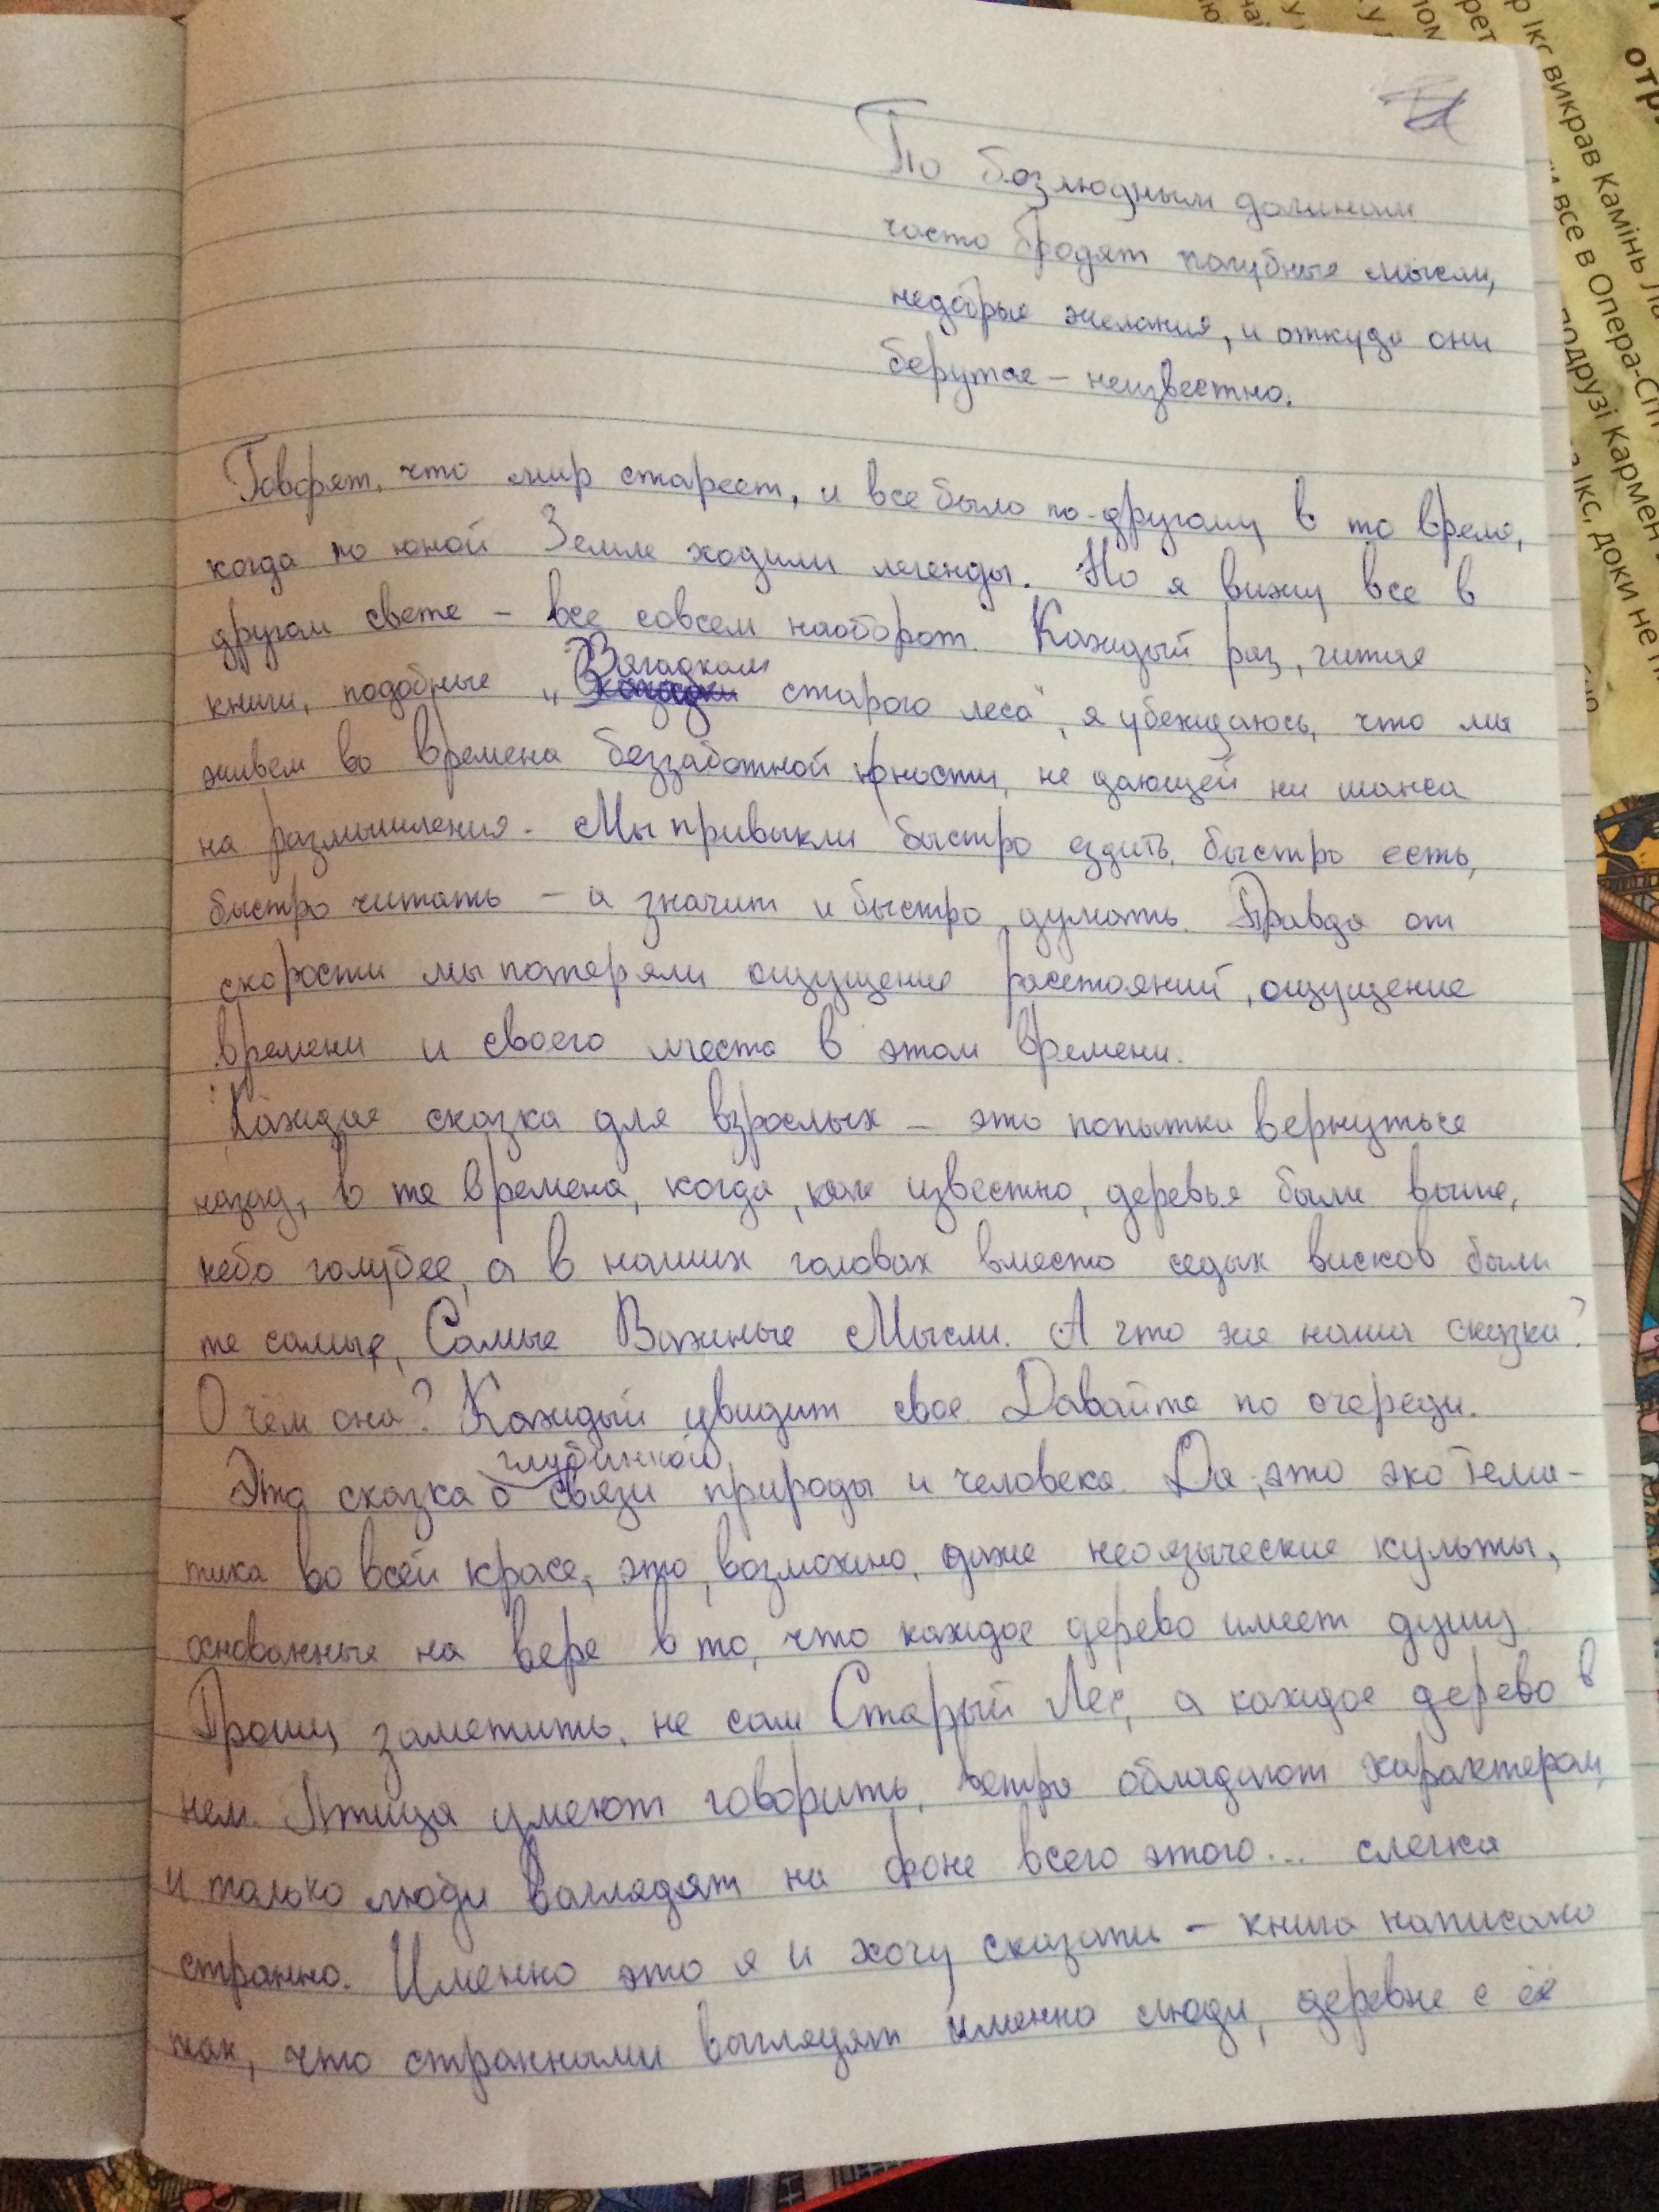 По безлюдным долинам
часто бродят пагубные мысли,
недобрые желания, и откуда они
берутся – неизвестно.
Говорят, что мир стареет, и все было по-другому в то время,
когда по юной Земле ходили легенды. Но я вижу все в
другом свете – все совсем наоборот. Каждый раз, читая
Загадкам
книги, подобные „ старого леса", я убеждаюсь, что мы
живем во времена беззаботной юности, не дающей ни шанса
на размышления. Мы привыкли быстро ездить, быстро есть,
быстро читать – а значит и быстро думать. Правда от
скорости мы потеряли ощущение расстояний, ощущение
времени и своего места в этом времени.
Каждая сказка для взрослых – это попытки вернуться
назад, в те времена, когда, как известно, деревья были выше,
небо голубее, а в наших головах вместо седых висков были
те самые, Самые Важные Мысли. А что же наша сказка?
О чём она? Каждый увидит свое Давайте по очереди.
глубинной
Эта сказка о связи природы и человека. Да, это эко тема-
тика во всей красе, это, возможно, даже неоязыческие культы,
основанные на вере в то, что каждое дерево имеет душу
Прошу заметить, не сам Старый Лес, а каждое дерево в
нем. Птица умеют говорить, ветра обладают характером,
и только люди выглядят на фоне всего этого... слегка
странно. Именно это я и хочу сказать – книга написана
так, что странными выглядят именно люди, деревня с её
р Ікс викрав Камінь Ла
и все в Опера-Сіт
подрузі Кармен
а Ікс, доки не п
отр